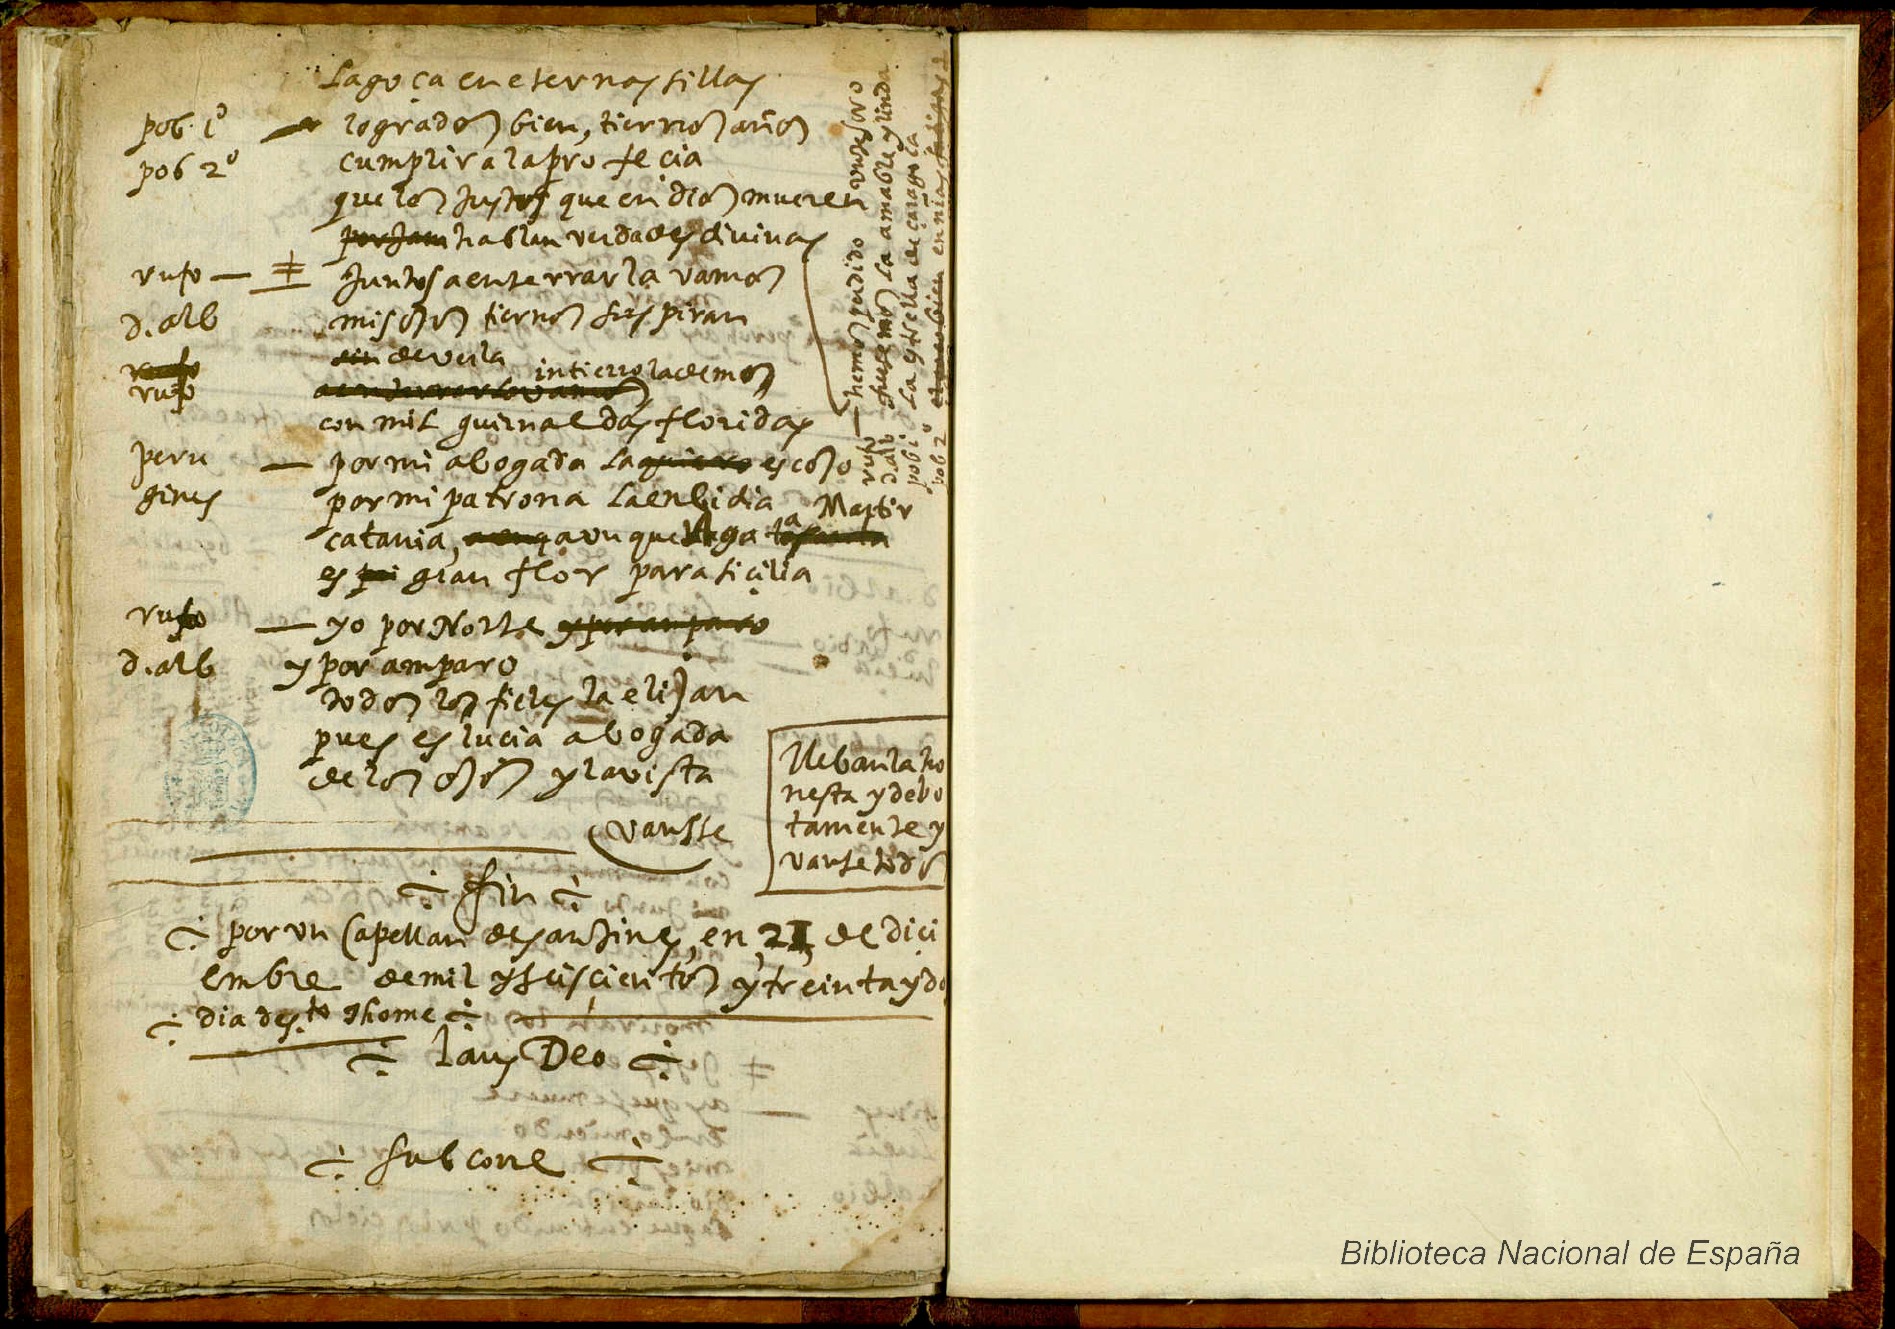 La goça en eternas sillas
pob. 1º — logrados bien, tiernos años
pob 2º cumplira la profecia
que los Justos que en dios mueren
hablan verdades divinas
rufo — Juntos a enterrarla vamos
d. alb mis ojos tiernos suspiran
de verla
rufo intierro la demos
con mil guirnaldas floridas
peru — por mi abogada la escojo
gines por mi patrona la enbidia
catania, aunque Aga ta Martir
es gran flor para sicilia
rufo — yo por Norte
d. alb y por amparo
todos los fieles la elijan
pues es lucia abogada
de los ojos y la vista
vansse
rufo — hemos perdido un tesoro
d. alb fuese mos la amable y linda
pob 1º La estrella de caragoça
pob 2
llebanla ho
nesta y debo
tamente y
vanse todos
fin
por un Capellan de san Jines, en, 21, de dici
embre de mil y seiscientos y treinta y do
dia de sto thome
laus Deo
sub corre
Biblioteca Nacional de España